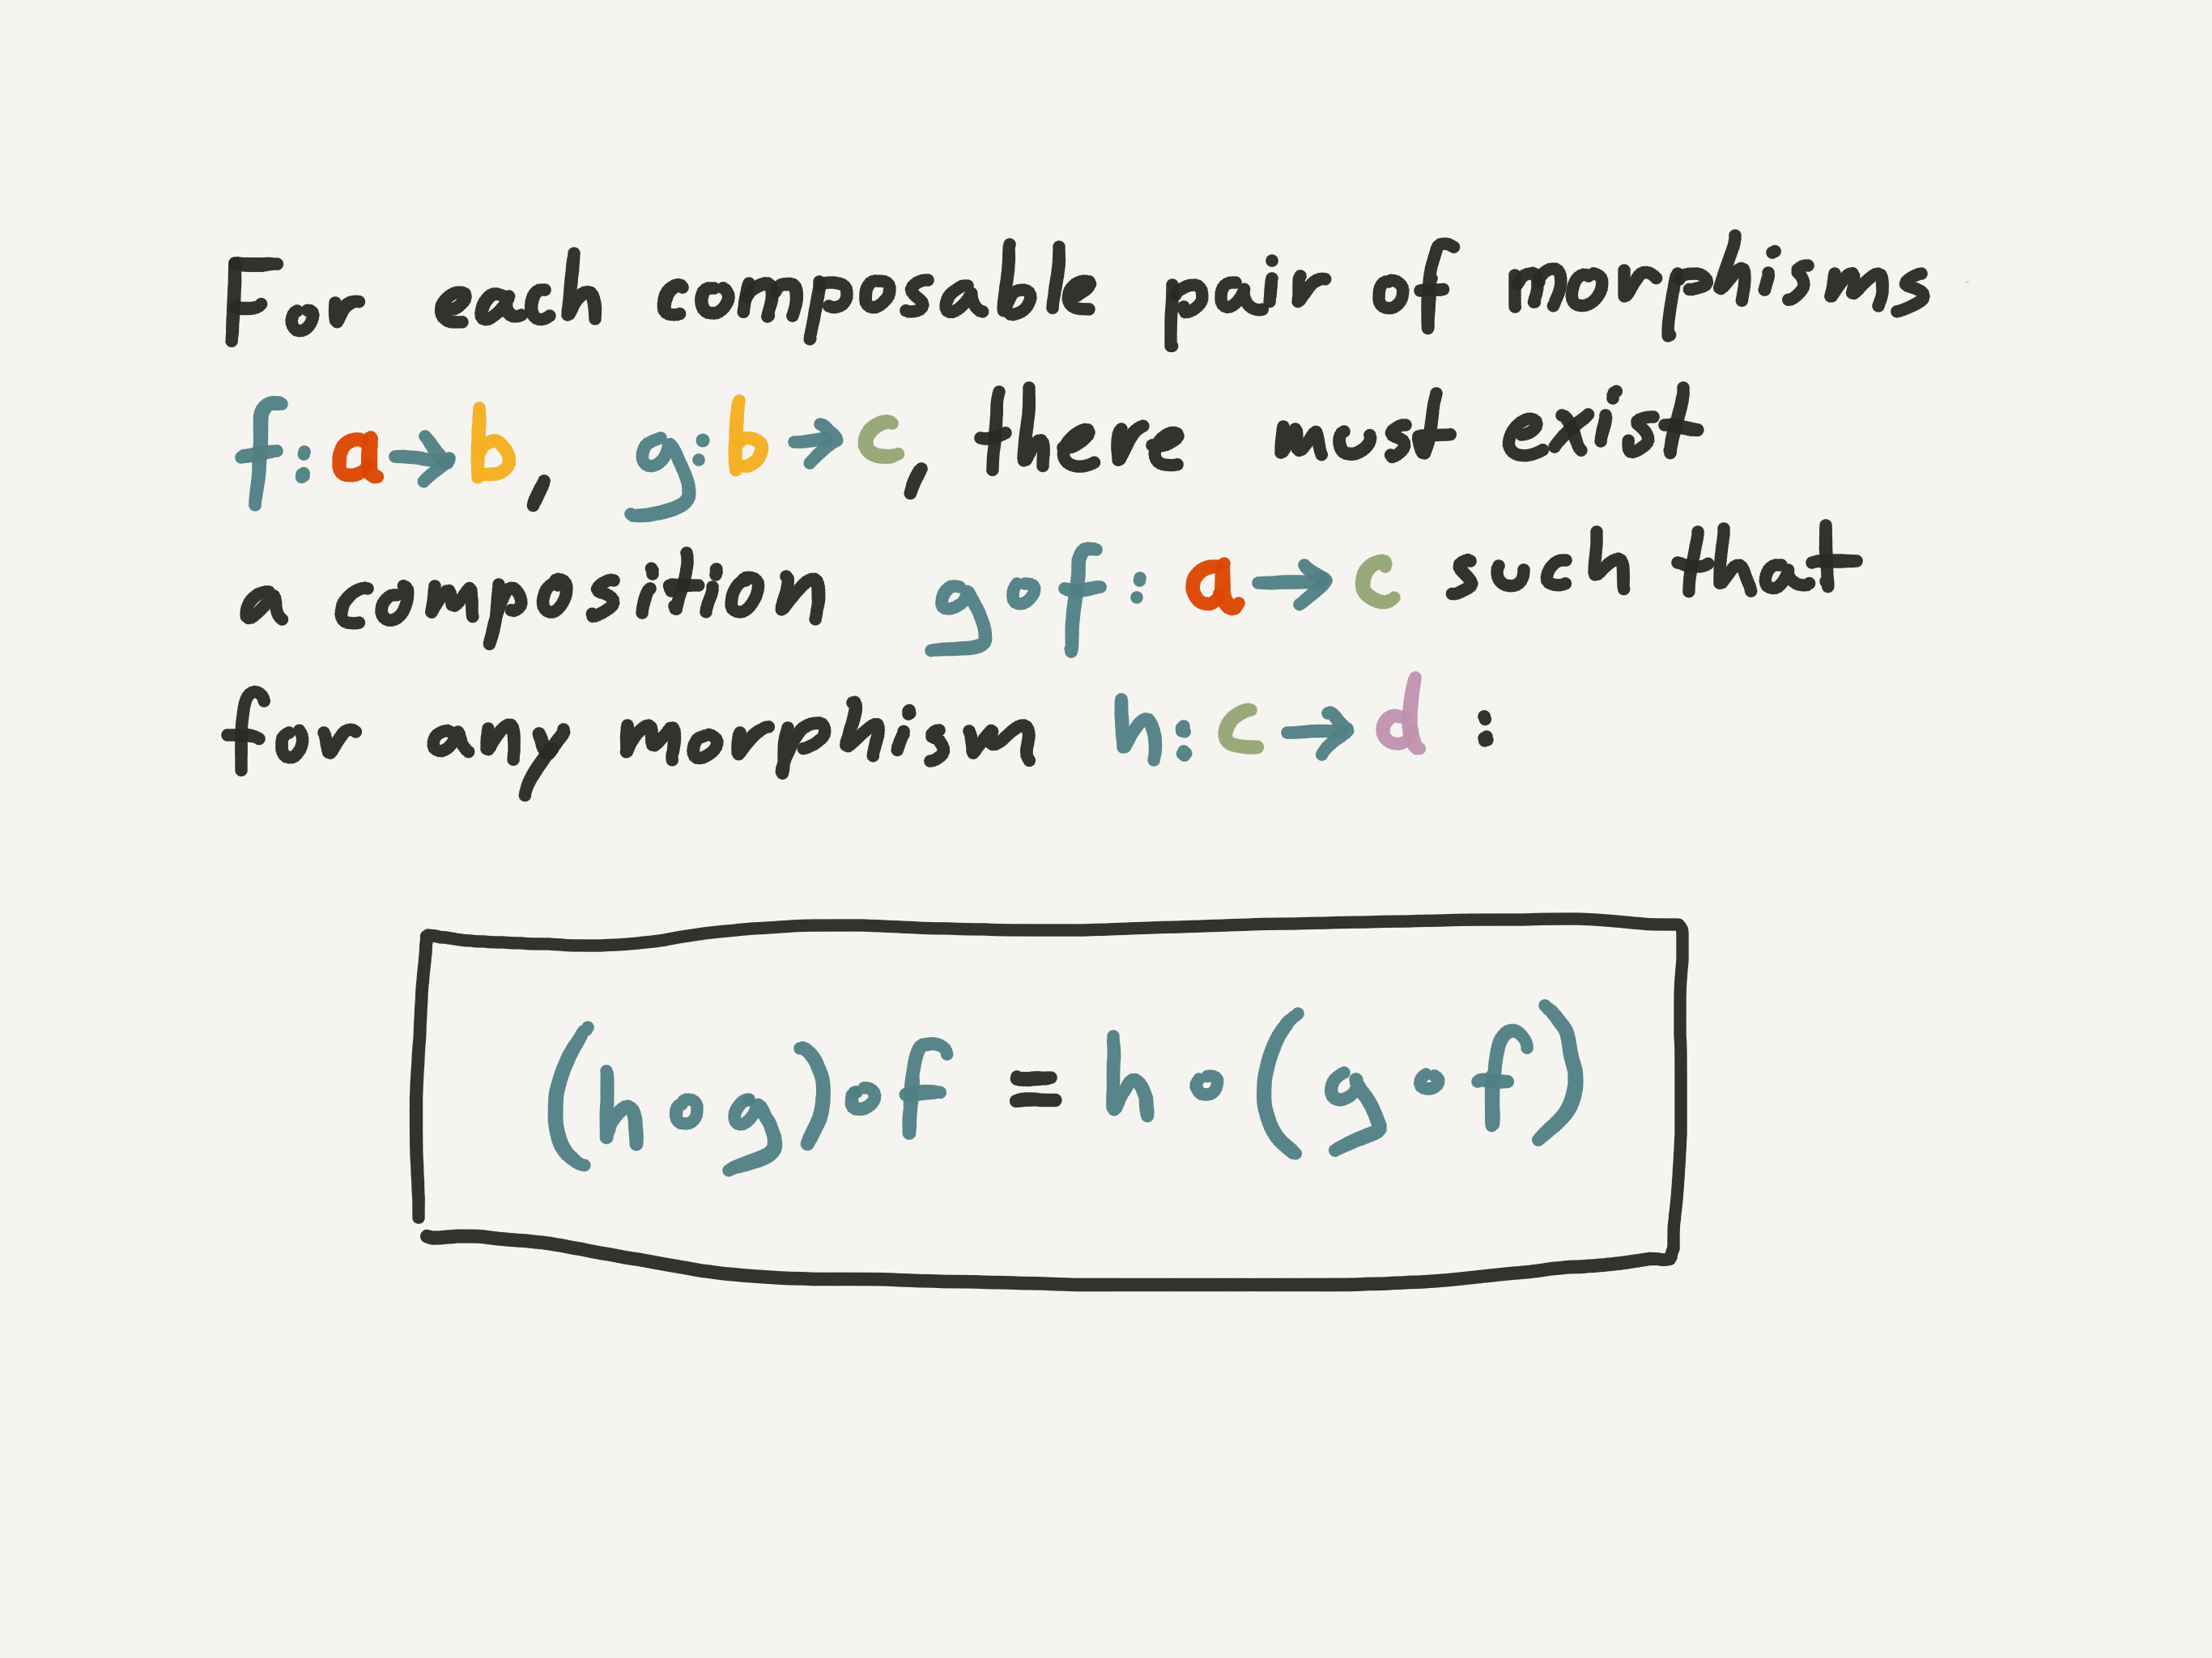 For each composable pair of morphisms
f: a → b, g: b → c, there must exist
a composition g∘f: a → c such that
for any morphism h: c → d :
(h∘g)∘f = h∘(g∘f)